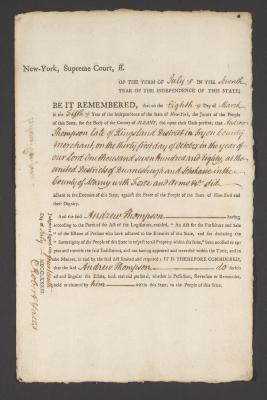 New-York, Supreme Court, ss.
OF THE TERM OF July IN THE Seventh
YEAR OF THE INDEPENDENCE OF THE STATE;
BE IT REMEMBERED, that on the Eighth Day of March
in the Fifth Year of the Independence of the State of New-York, the Jurors of the People
of this State, for the Body of the County of ALBANY, did upon their Oath present, that Andrew
Thompson late of Kingsland District in Tryon County
Merchant, on the thirty first day of October in the year of
our Lord One thousand seven hundred and Eighty, at the
united Districts of Duanesburgh and Schoharie in the
County of Albany with Force and arms &c. did
adhere to the Enemies of this State, against the Peace of the People of the State of New-York and their
Dignity.
And the said Andrew Thompson having,
according to the Form of the Act of the Legislature, entitled, "An Act for the Forfeiture and Sale
"of the Estates of Persons who have adhered to the Enemies of this State, and for declaring the
"Sovereignty of the People of this State in respect to all Property within the same," been notified to appear
and traverse the said Indictment, and not having appeared and traversed within the Time, and in
the Manner, in and by the said Act limited and required; IT IS THEREFORE CONSIDERED,
that the said Andrew Thompson do forfeit
all and singular the Estate, both real and personal, whether in Possession, Reversion or Remainder,
held or claimed by him within this State, to the People of this State.
Judgment signed this
Day of July
MDCCLXXXIII